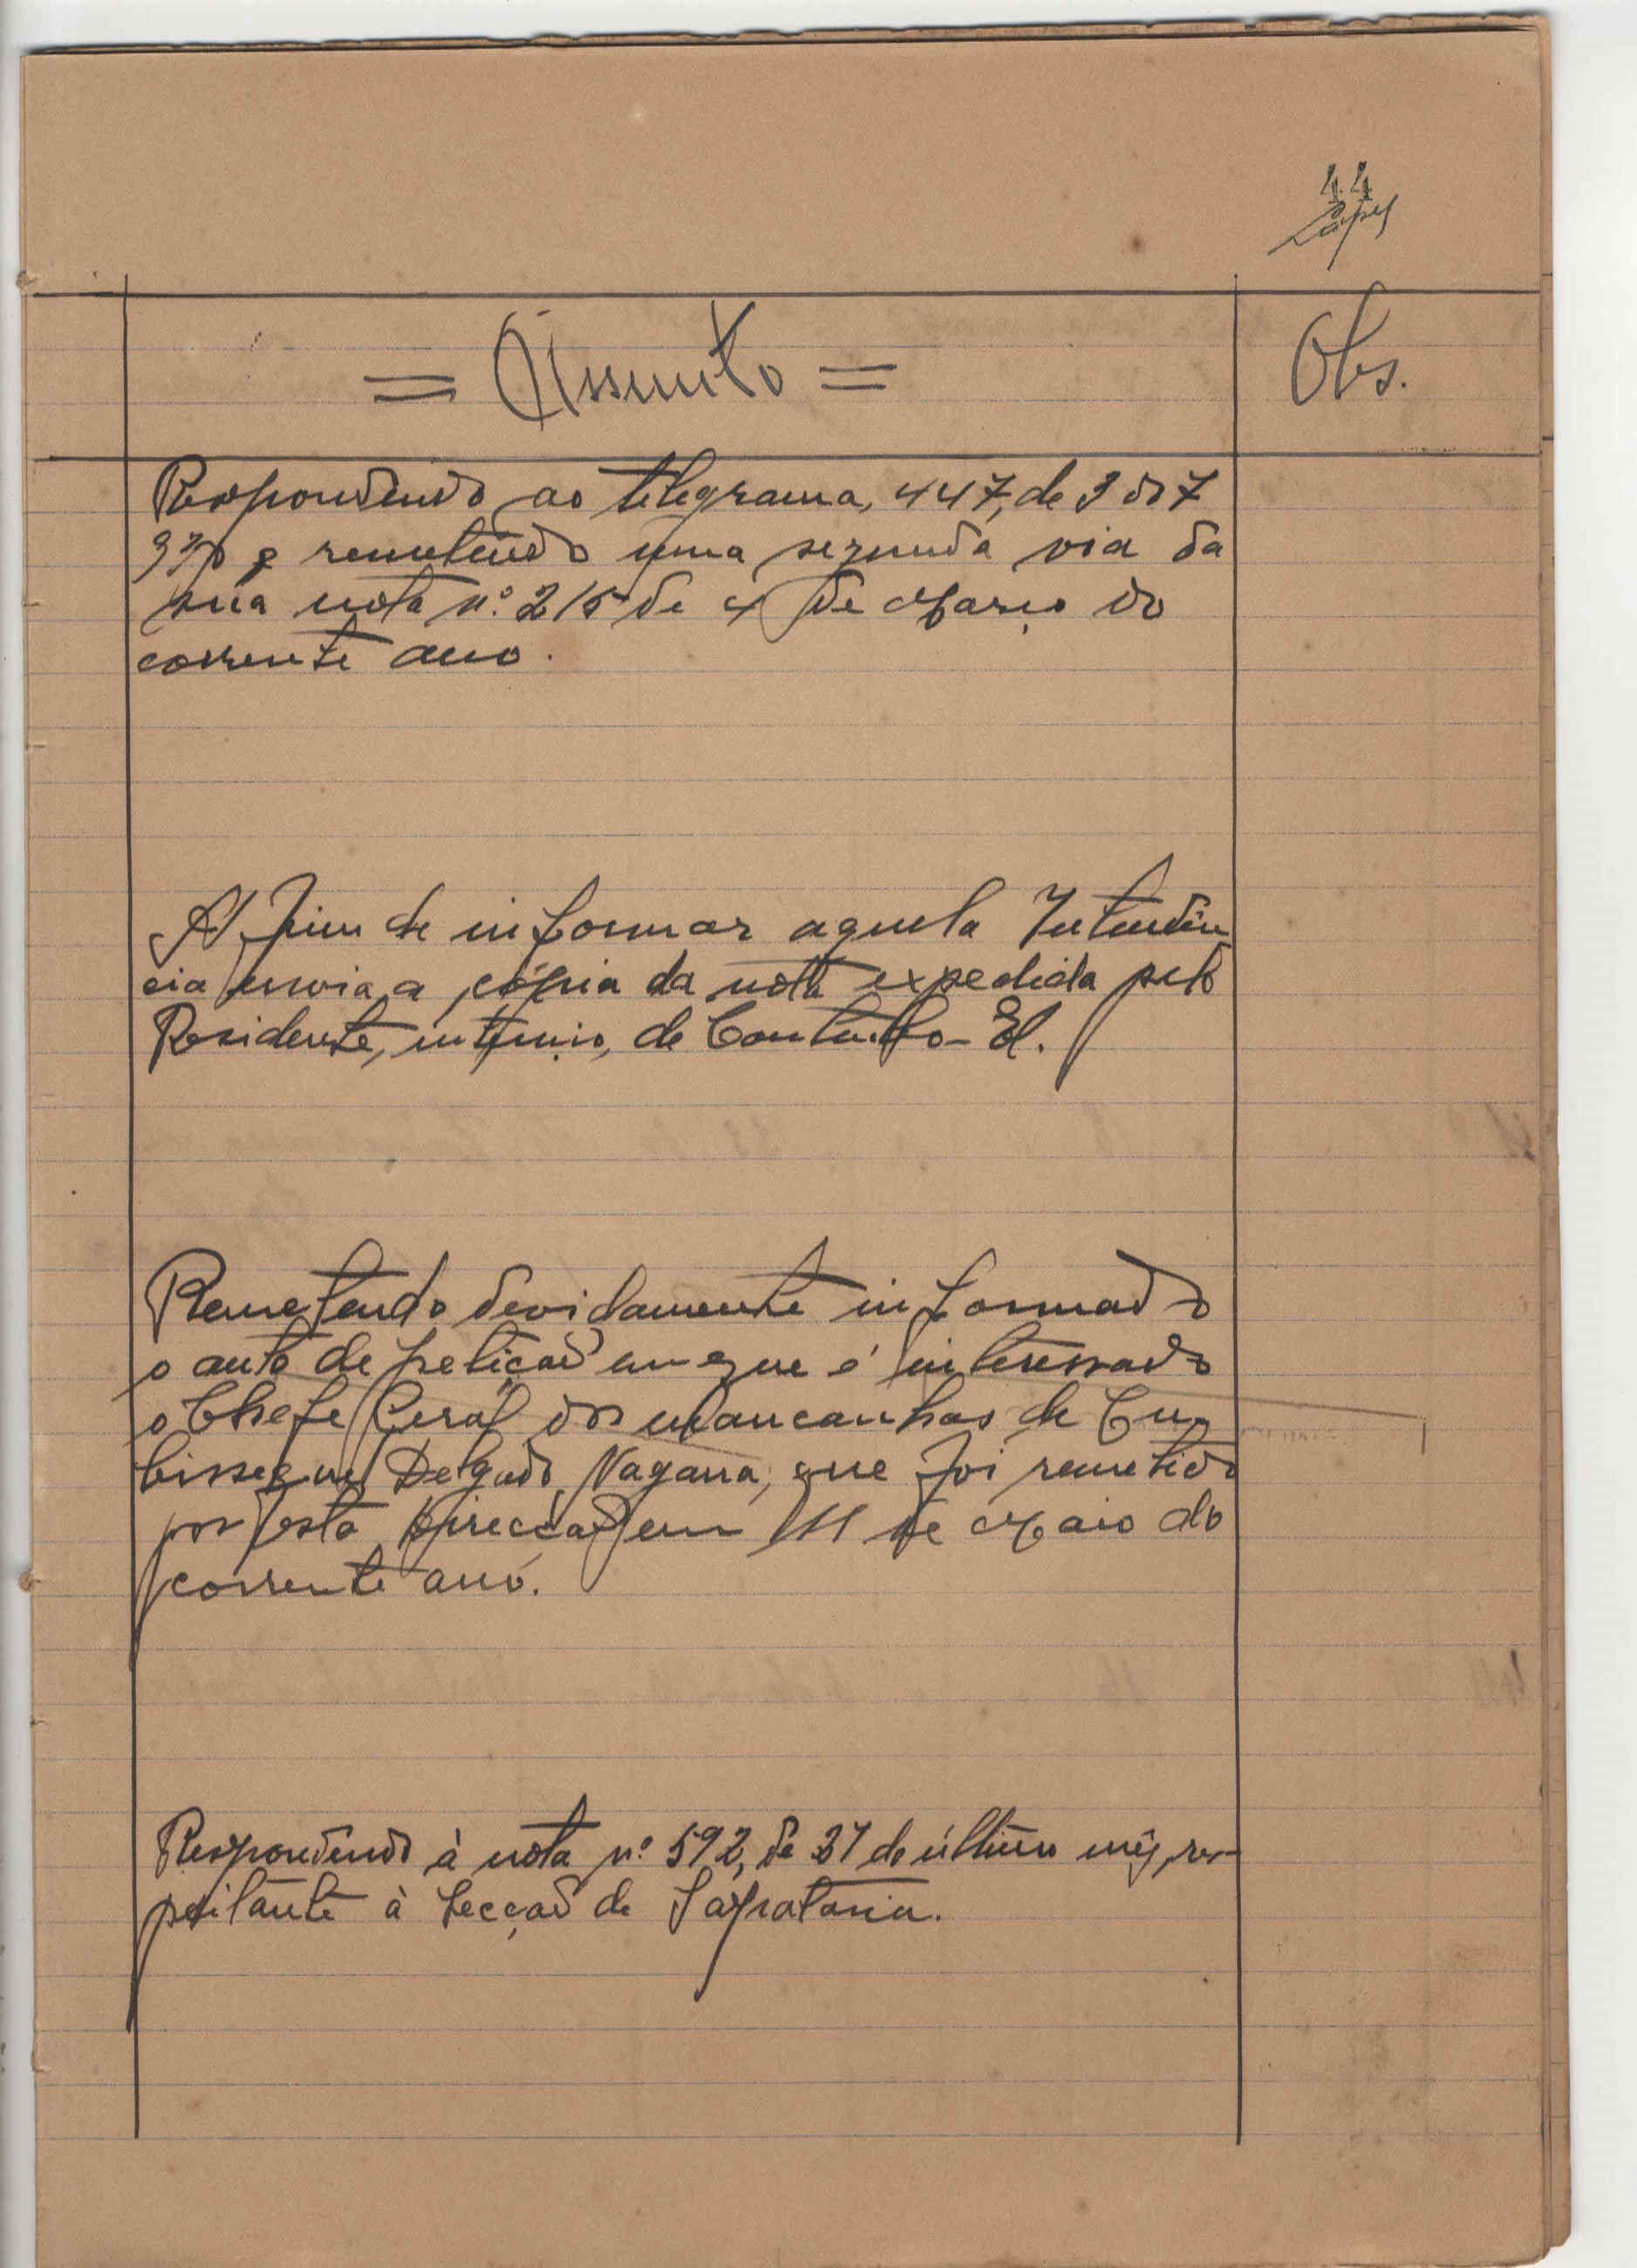 44
= Assunto =
Obs.
Respondendo ao telegrama, 447, de 3 do 7
remetendo uma segunda via da
sua nota n.º 215 de 4 de Março do
corrente ano.
A fim de informar aquela Intendên
cia envia a cópia da nota expedida pelo
Residente, interino, de Contubo-El.
Remetendo devidamente informado
o auto de petição em que é interessado
o Chefe Geral dos mancanhas de Cu
bisseque, Delgado Nagana, que foi remetido
por esta Direcção em 11 de Maio do
corrente ano.
Respondendo à nota n.º 592, de 27 do último mês, res-
peitante à secção de Sapataria.